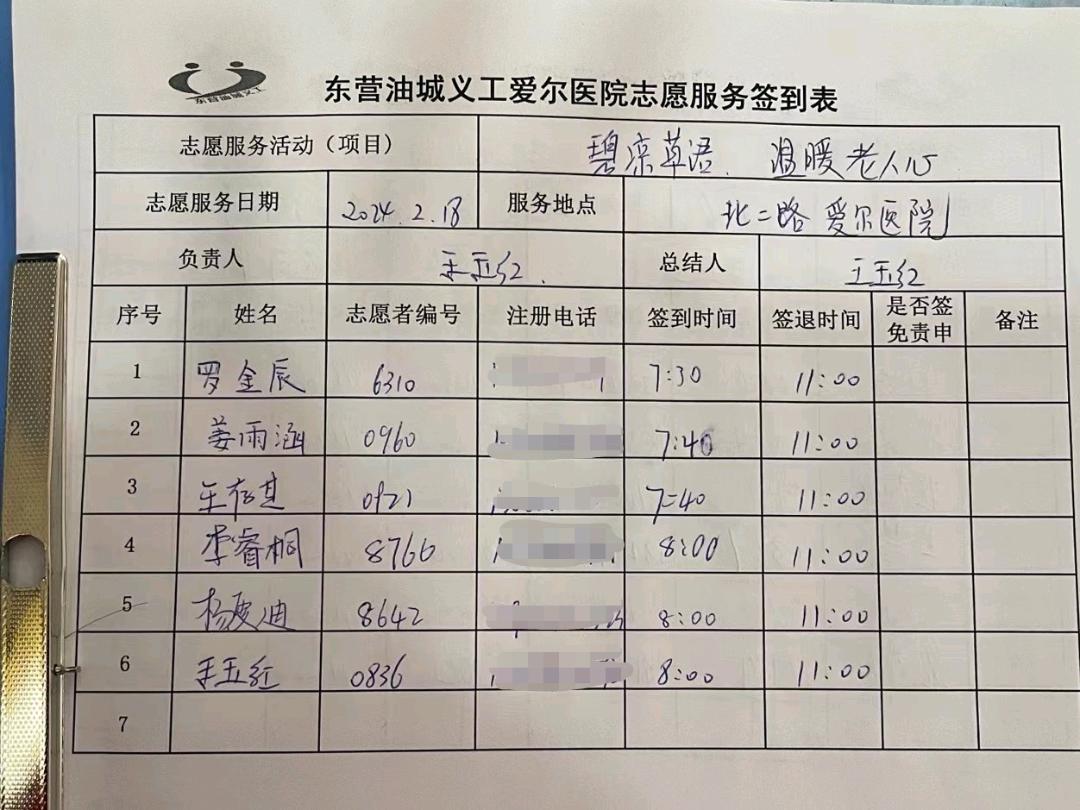 东营油城义工
东营油城义工爱尔医院志愿服务签到表
志愿服务活动（项目） 碧凉草语、温暖老人心
志愿服务日期 2024.2.18 服务地点 北二路 爱尔医院
负责人 王玉红. 总结人 王玉红
序号 姓名 志愿者编号 注册电话 签到时间 签退时间 是否签免责申 备注
1 罗金辰 6310 7:30 11:00
2 姜雨涵 0960 7:40 11:00
3 王存其 0921 7:40 11:00
4 李睿桐 8766 8:00 11:00
5 杨 迪 8642 8:00 11:00
6 王玉红 0836 8:00 11:00
7